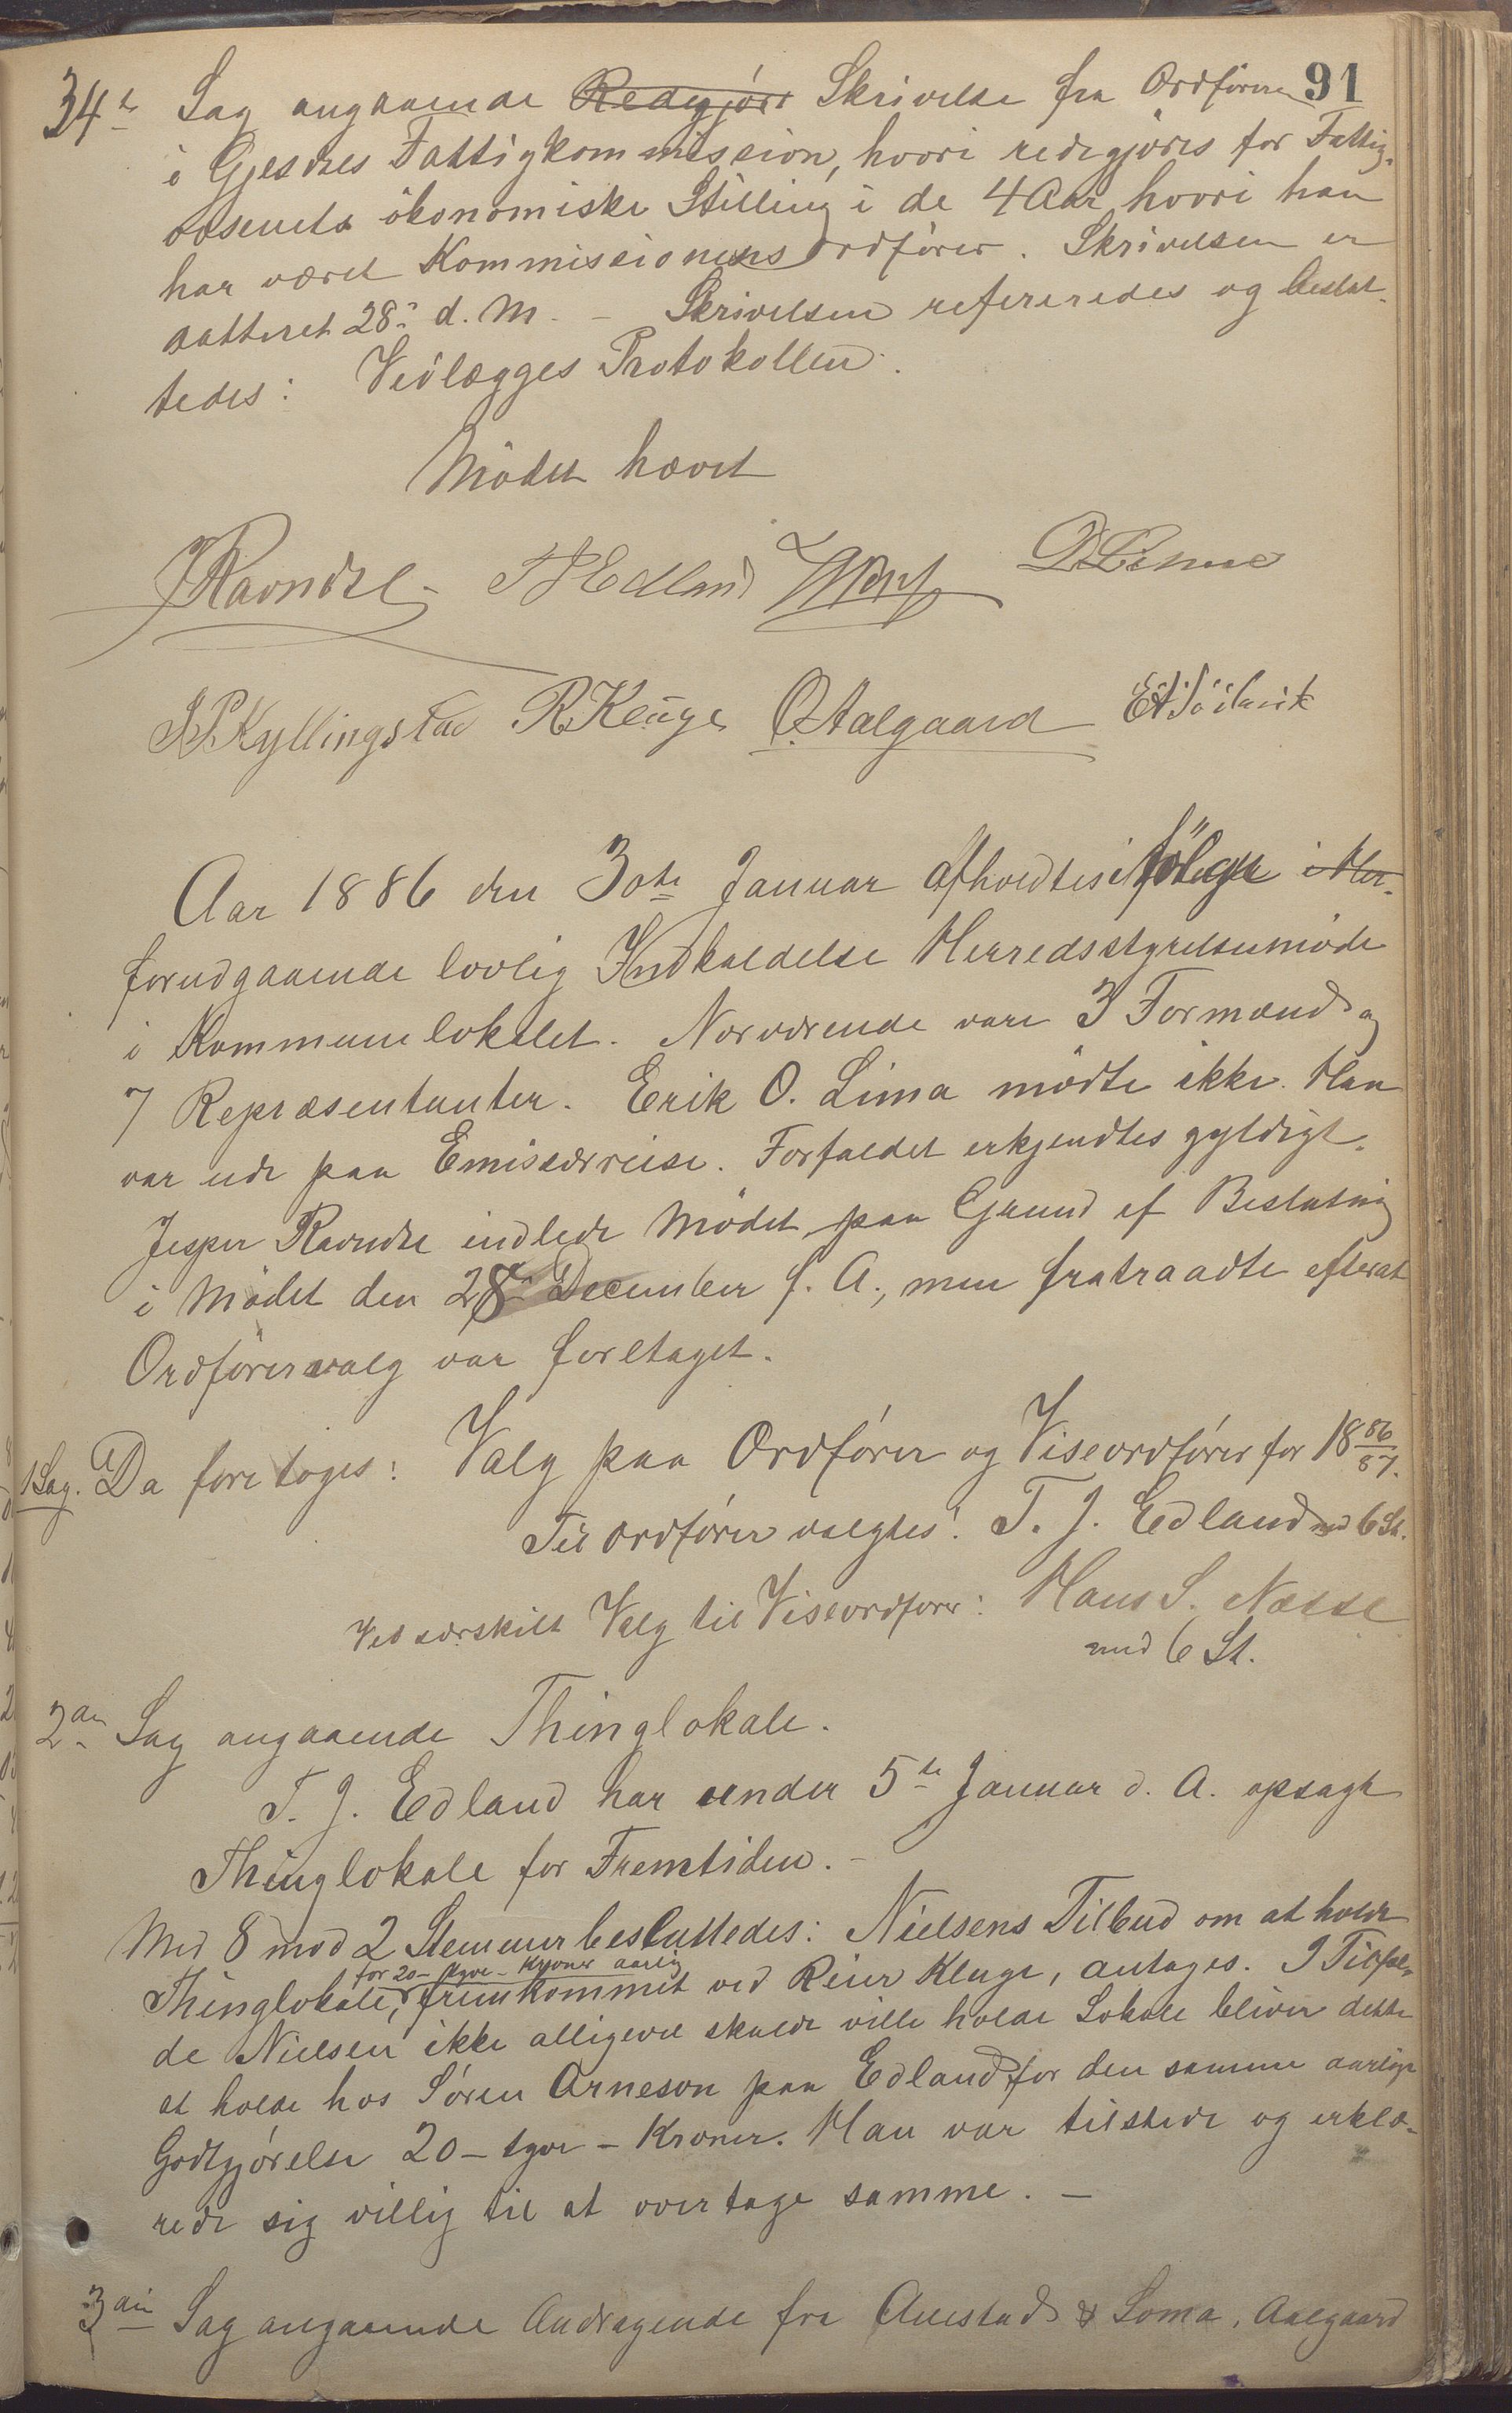 91
34te Sag angaaende Redegjöre Skrivelse fra Ordföreren
i Gjesdals Fattigkommission, hvori redegjöres for Fattig-
væsenets ökonomiske Stilling i de 4 Aar hvori han
har været Kommissionens Ordförer. Skrivelsen er
datteret 28: d. M. - Skrivelsen refereredes og beslut-
tedes: Vedlægges Protokollen.
Mödet hævet
JRavndal TJEdland OLima
SPKyllingstad RKluge OAalgaard
Aar 1886 den 30te Januar afholdtes ifölge i Her-
forudgaaende lovlig Indkaldelse Herredsstyrelsemöde
i Kommunelokalet. Nærværende vare 3 Formænd og
7 Repræsentanter. Erik O. Lima mödte ikke. Han
var ude paa Emissærreise. Forfaldet erkjendtes gyldigt.
Jesper Ravndal indlede Mödet paa Grund af Beslutning
i Mödet den 28: December f. A., men fratraadte efterat
Ordförervalg var foretaget.
1 Sag. Da foretoges: Valg paa Ordförer og Viseordförer for 1886/87.
Til Ordförer valgtes: T. J. Edland med 6 St.
Ved særskilt Valg til Viseordförer: Hans S. Næsse
med 6 St.
2den Sag angaaende Thinglokale.
T. J. Edland har under 5te Januar d. A. opsagt
Thinglokale for Fremtiden. -
Med 8 mod 2 Stemmer besluttedes: Nielsens Tilbud om at holde
for 20 - tyve - Kroner aarlig
Thinglokale, fremkommet ved Reier Kluge, antages. I Tilfæl-
de Nielsen ikke alligevel skulde ville holde Lokale bliver dette
at holde hos Sören Arneson paa Edland for den samme aarlige
Godtgjörelse 20 - tyve - Kroner. Han var tilstede og erklæ-
rede sig villig til at overtage samme. -
3die Sag angaaende Andragende fra Auestad & Soma, Aalgaard